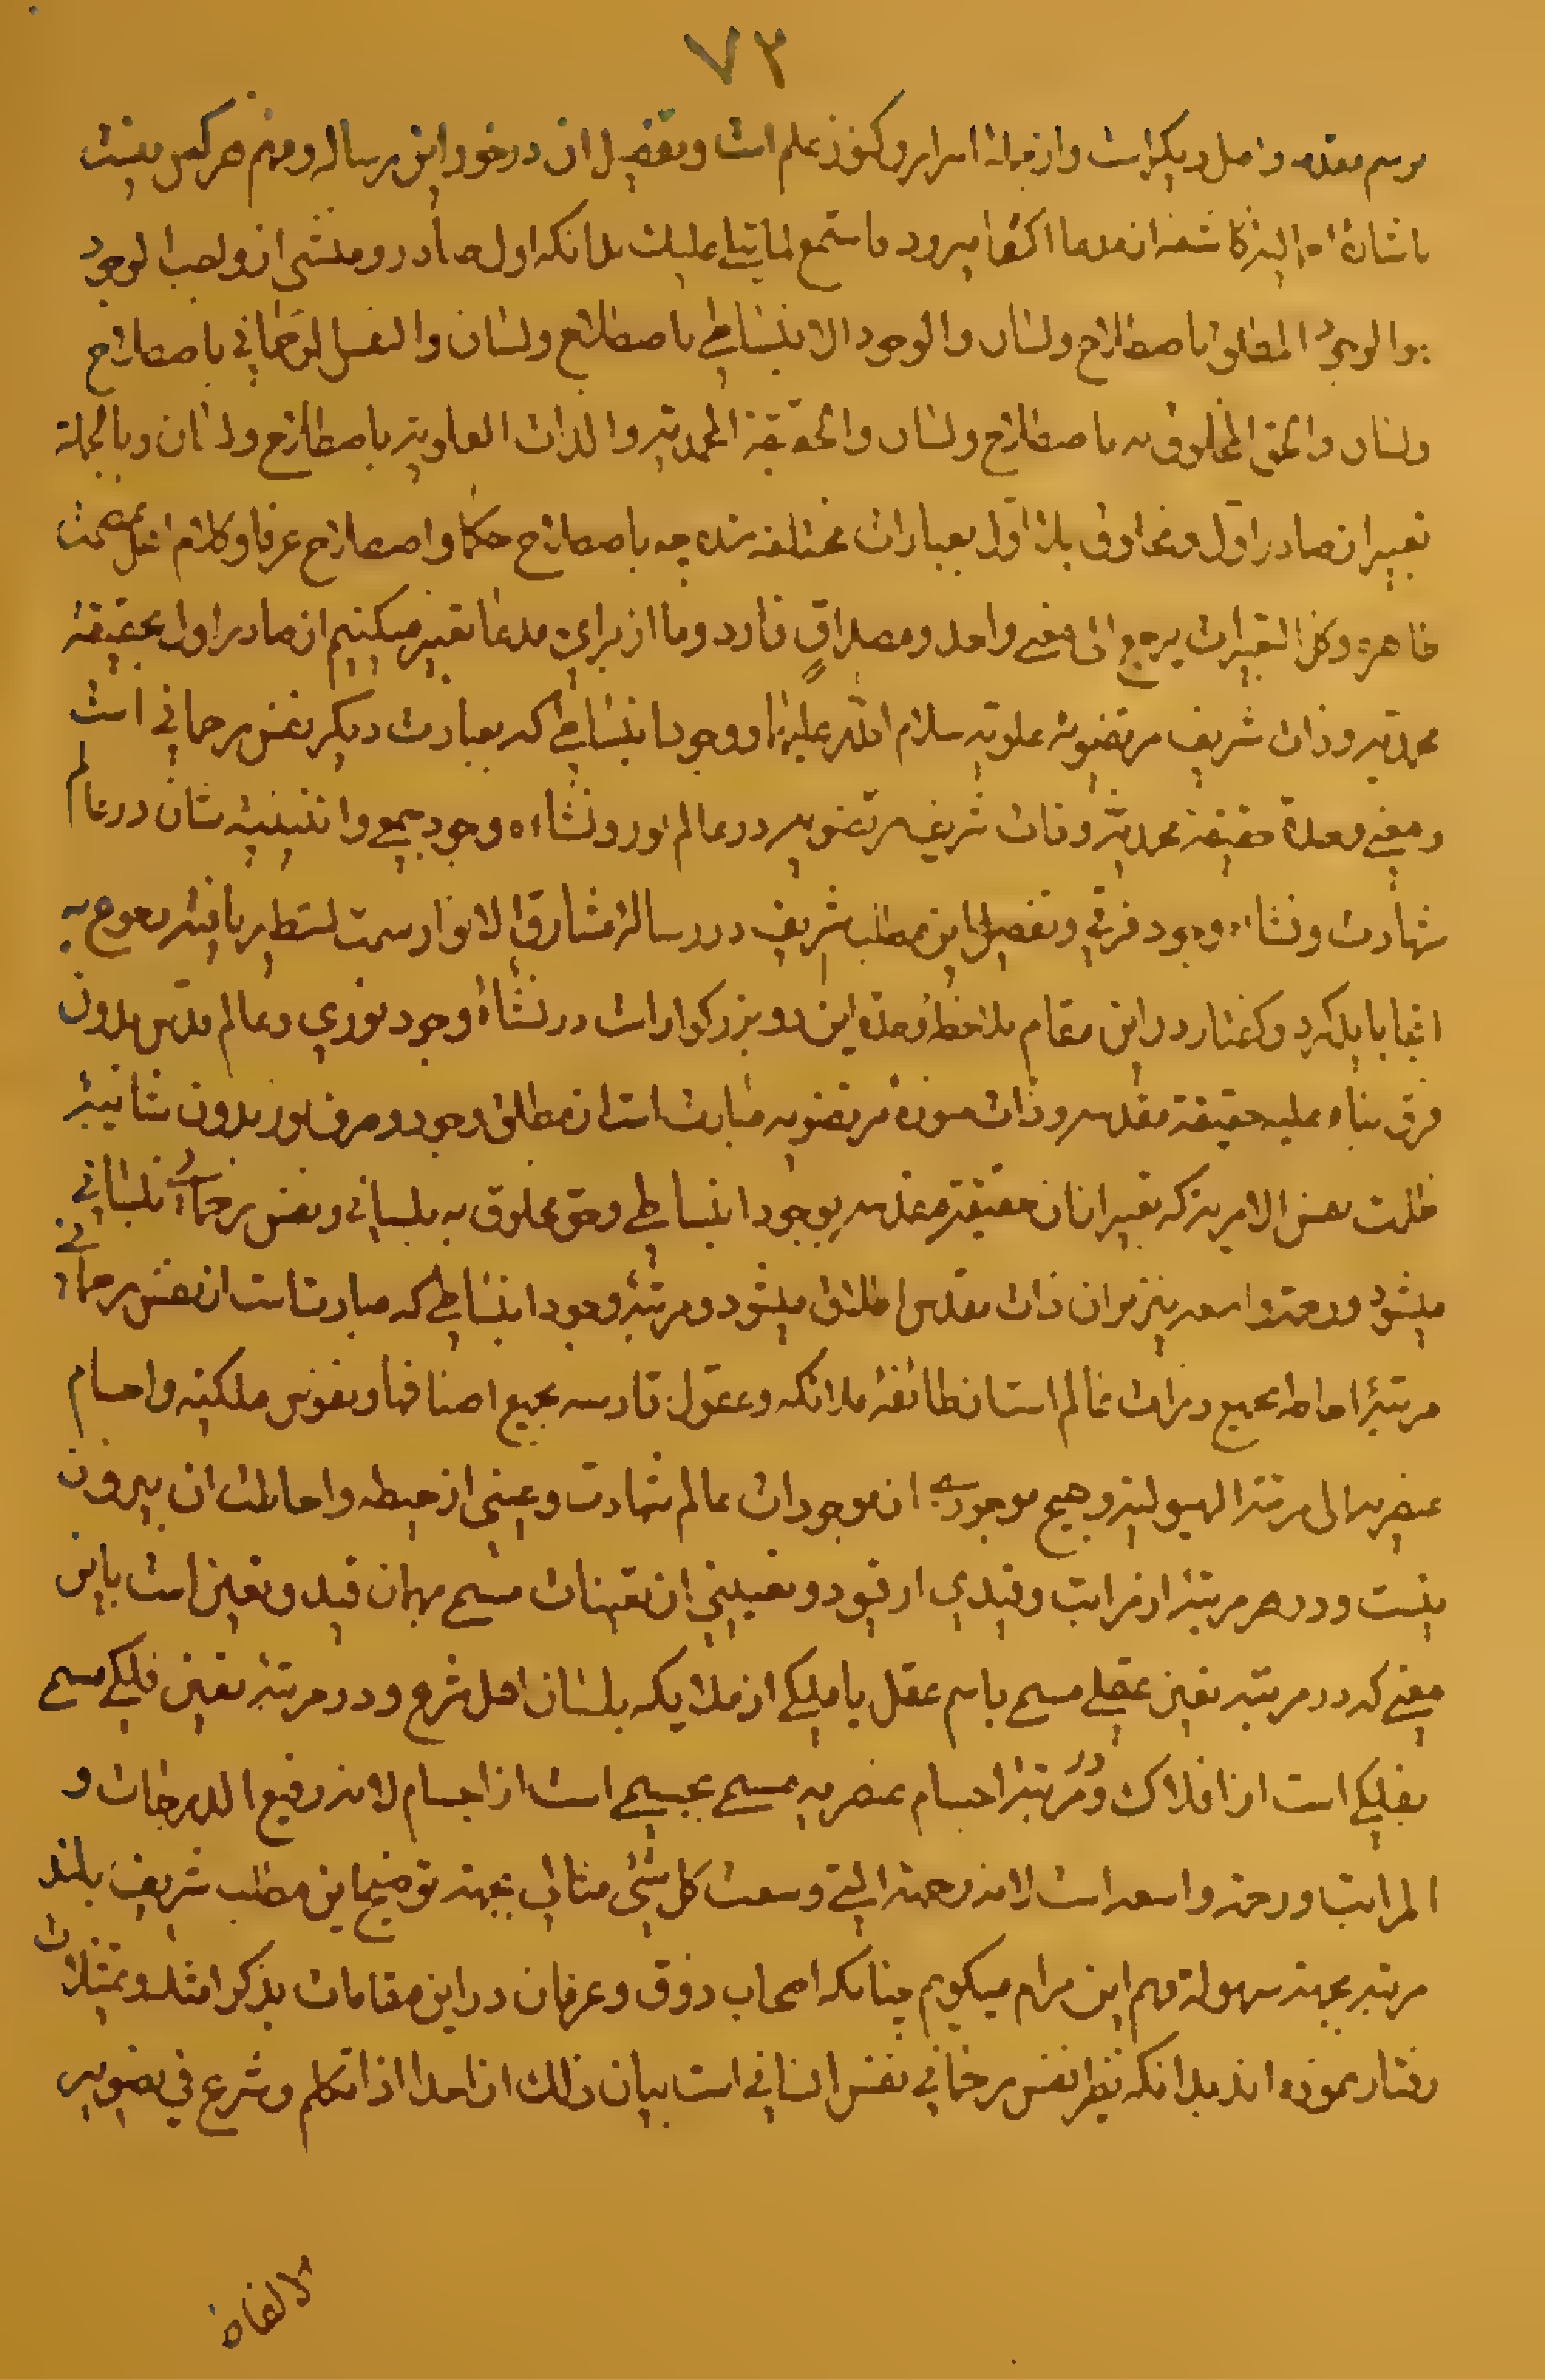 ٧٣
رسم مقدمه و اصل دیکر است و از جمله اسرار و کنوز علم است و تفصیل ان در خور این رساله و فهم هر کس نیست
باشارۀ اجمالیه کاشفه از مدعا اکتفا میرود فاستمع لما یتلی علیک بدانکه اول صادر و منشی از واجب الوجود
هو الوجود المطلق باصطلاح ولسان والوجود الانبساطی باصطلاح ولسان والنفس الرحمانی باصطلاح
ولسان والحق المخلوق به باصطلاح ولسان والحقیقة المحمدیه والذات العلویه باصطلاح ولسان وبالجمله
تعبیر از صادر اول و مخلوق بلا اول بعبارات مختلفه شده چه باصطلاح حکما و اصطلاح عرفا و کلام اهل عصمت
طاهره وکل التعبیرات یرجع الی معنی واحد ومصداق فارد وما از برای مدعا تعبیر میکنیم از صادر اول بحقیقة
محمدیه و ذات شریف مرتضویه علویه سلام الله علیهما و وجود انبساطی که بعبارت دیکر نفس رحمانی است
و معنی وحدة حقیقة محمدیه و ذات شریف مرتضویه در عالم نور و نشاءه وجود جمعی و اثنینیه شان در عالم
شهادت و نشاءه وجود فرقی و تفصیل این مطلب شریف در رسالۀ مشارق الانوار سمت تسطیر یافته رجوع به
انجا باید کرد و کفتار در این مقام بملاحظۀ وحدة این دو بزرکوار است در نشاۀ وجود نوری و عالم قدس بدون
فرق بناء علیه حقیقة مقدسه و ذات مرتضویه عبارت است از مطلق وجود و صرف نور بدون شائبۀ
ظلمت نفس الامریه که تعبیر از ان حقیقة مقدسه بوجود انبساطی و حق مخلوق به بلسانی و نفس رحمانی بلسانی
میشود و رحمة واسعه نیز بران ذات مقدس اطلاق میشود و مرتبۀ وجود انبساطی که عبارتست از نفس رحمانی
مرتبۀ احاطه بجمیع ذرات عالم است از طائفۀ ملائکه و عقول قادسه بجمیع اصنافها و نفوس ملکیه و اجسام
عنصریه الی مرتبة الهیولیة و هیچ موجودی از موجودات عالم شهادت و غیبی از حیطه و احاطت ان بیرون
نیست و در هر مرتبۀ از مراتب و قیدی از قیود و تعیینی از تعینات مسمی بهمان قید و تعین است باین
معنی که در مرتبه تعین عقلی مسمی باسم عقل یا ملکی از ملایکه بلسان اهل شرع و در مرتبه تعین فلکی مسمی
بفلکی است از افلاک و در مرتبۀ اجسام عنصریه مسمی بجسمی است از اجسام لانه رفیع الدرجات و
المراتب و رحمة واسعه است لانه رحمته التی وسعت کل شئ مثالی بجهة توضیح این مطلب شریف بلند
مرتبه بجهة سهولة فهم این مرام میکویم چنانکه اصحاب ذوق و عرفان در این مقامات بذکر امثله و تمثیلات
رفتار نموده اند بدانکه نظیر نفس رحمانی نفس انسانی است بیان ذلک ان احدا اذا تکلم و شرع فی تصویر
الالفاظ